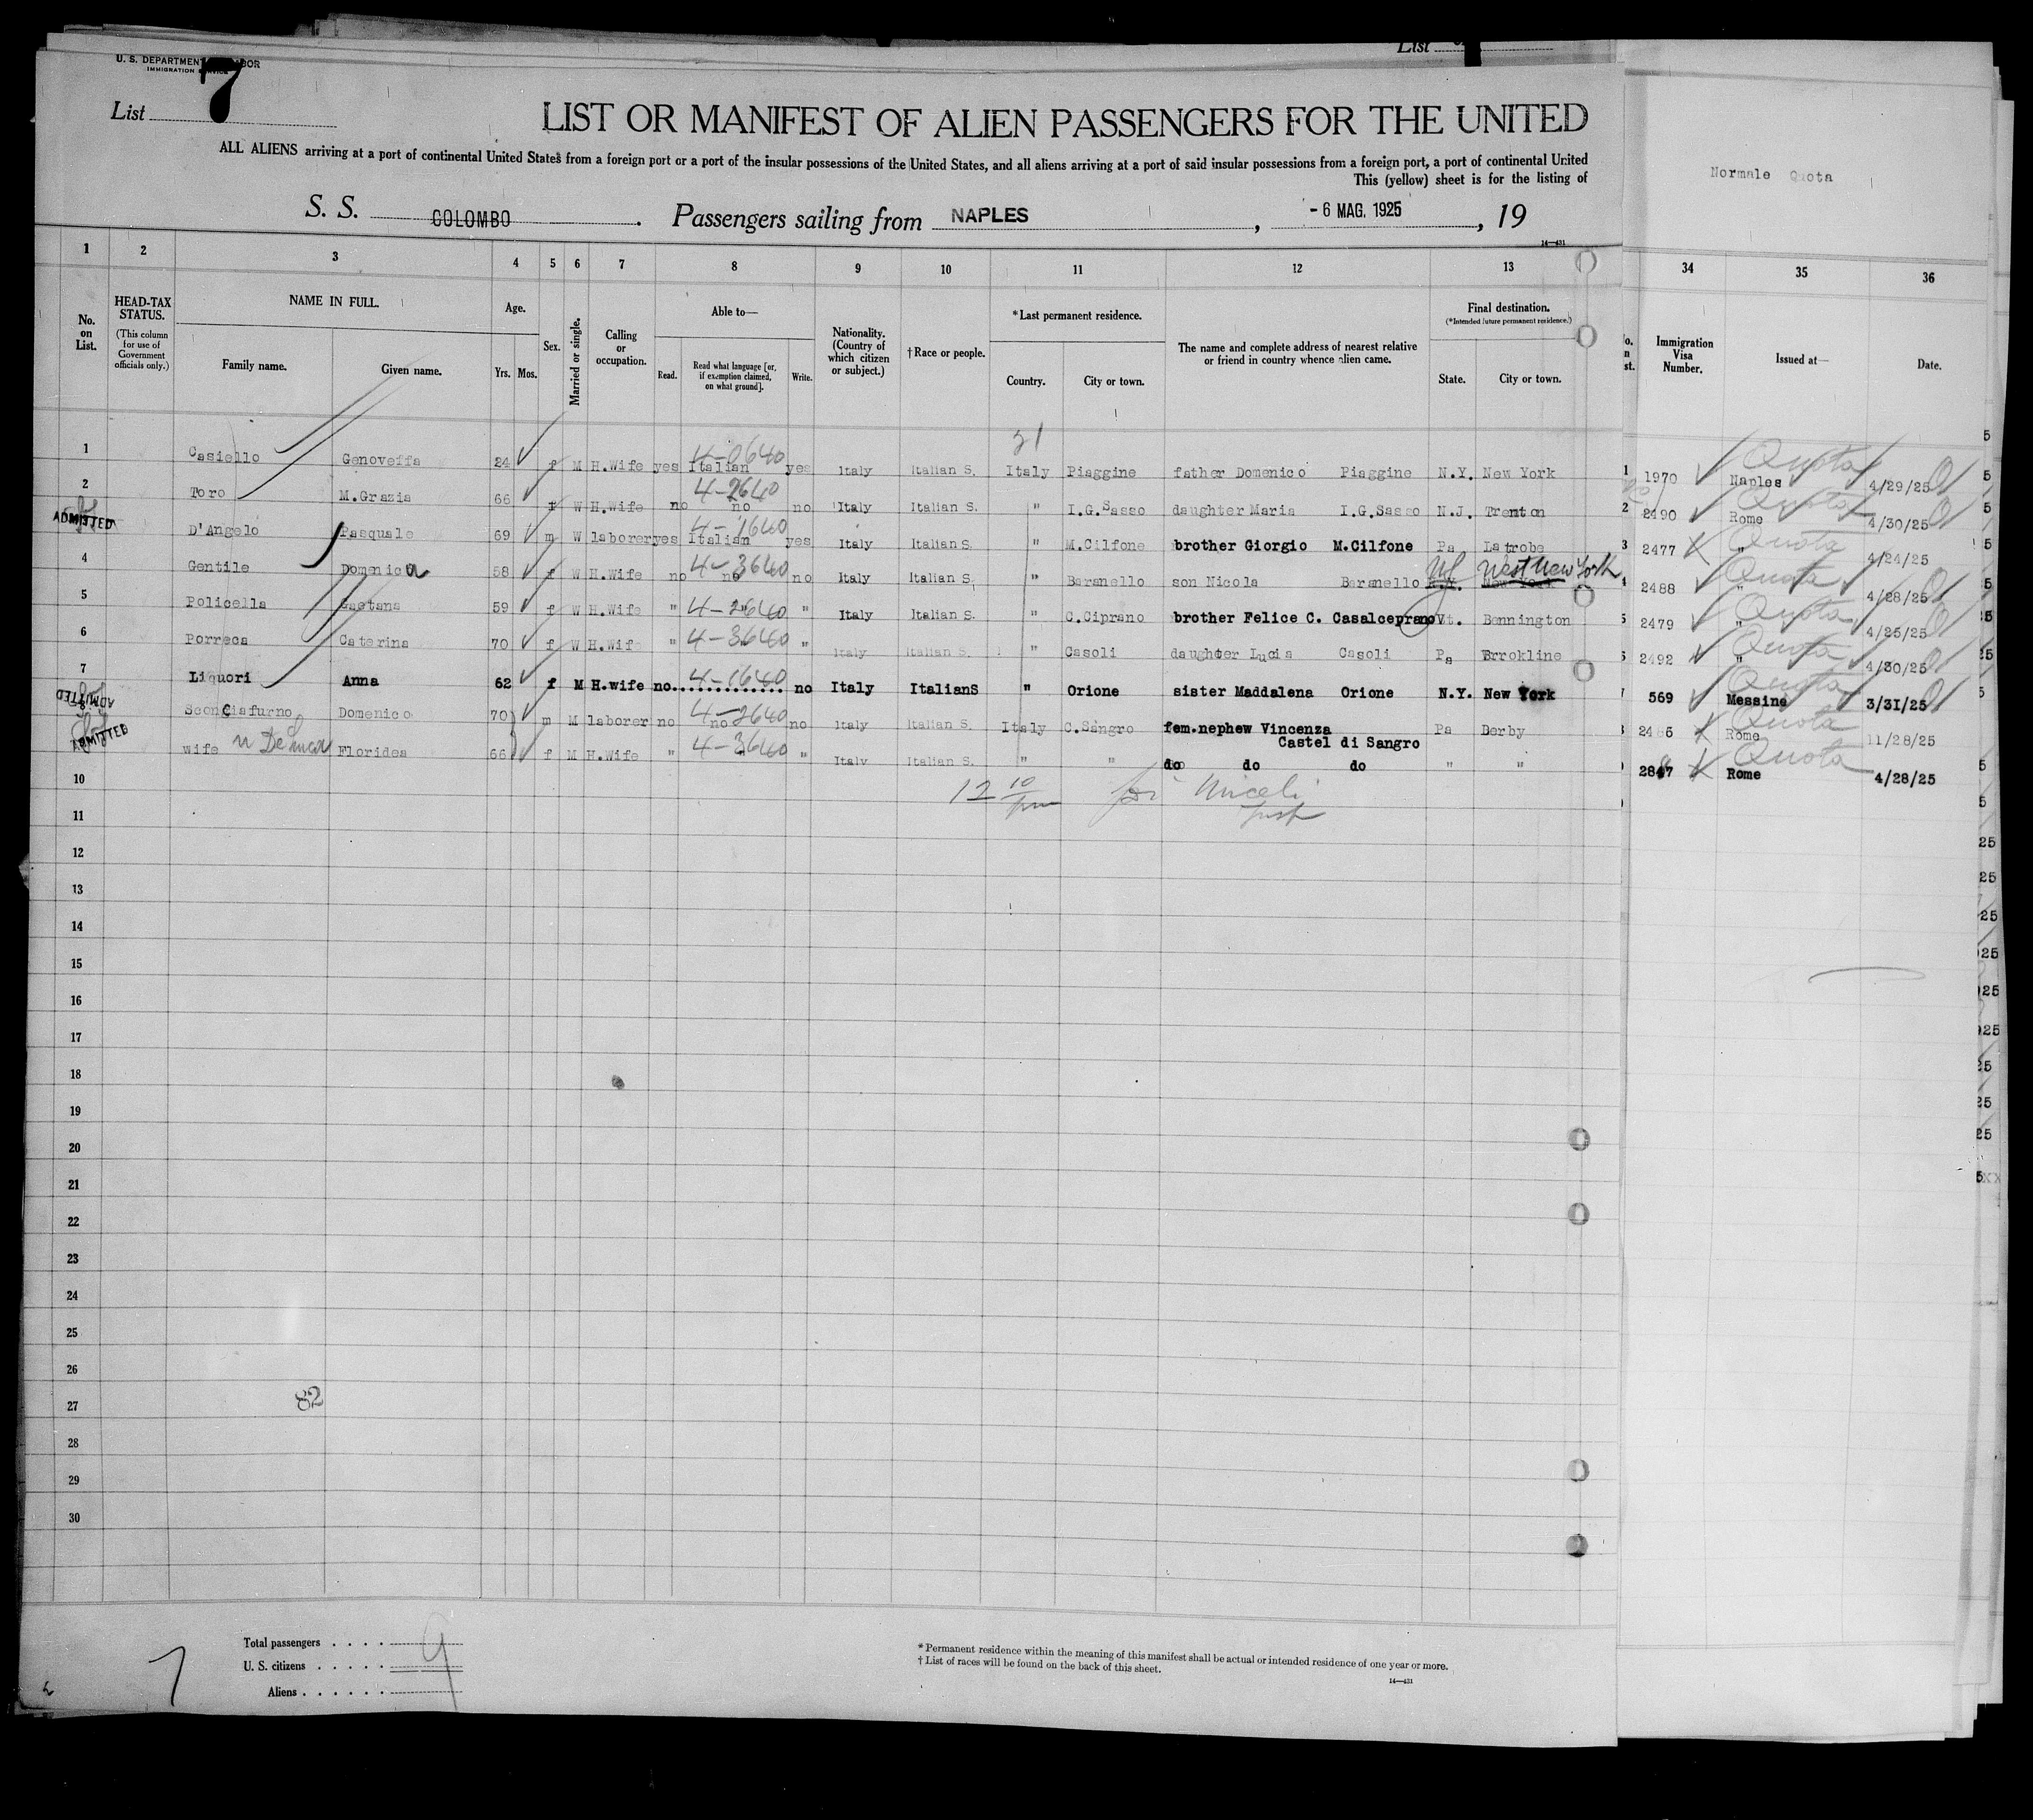 List
U. S. DEPARTMENT LABOR
IMMIGRATION SERVICE
List 7
LIST OR MANIFEST OF ALIEN PASSENGERS FOR THE UNITED
ALL ALIENS arriving at a port of continental United States from a foreign port or a port of the insular possessions of the United States, and all aliens arriving at a port of said insular possessions from a foreign port, a port of continental United
This (yellow) sheet is for the listing of
Normale Quota
S. S. COLOMBO . Passengers sailing from NAPLES , - 6 MAG. 1925 , 19
14—431
1 2 3 4 5 6 7 8 9 10 11 12 13 34 35 36
No. on List.
HEAD-TAX STATUS.
(This column for use of Government officials only.)
NAME IN FULL.
Family name. Given name.
Age.
Yrs. Mos.
Sex.
Married or single.
Calling or occupation.
Able to—
Read. Read what language [or, if exemption claimed, on what ground]. Write.
Nationality. (Country of which citizen or subject.)
†Race or people.
*Last permanent residence.
Country. City or town.
The name and complete address of nearest relative or friend in country whence alien came.
Final destination.
(*Intended future permanent residence.)
State. City or town.
Immigration Visa Number.
Issued at—
Date.
21
4-0640 Quota
1 Casiello Genoveffa 24 f M H.Wife yes Italian yes Italy Italian S. Italy Piaggine father Domenico Piaggine N.Y. New York 1 1970 Naples 4/29/25
4-2640 Quota
2 Toro M.Grazia 66 f W H.Wife no no no Italy Italian S. " I.G.Sasso daughter Maria I.G.Sasso N.J. Trenton 2 2490 Rome 4/30/25
4-1640 Quota
ADMITTED D'Angelo Pasquale 69 m W laborer yes Italian yes Italy Italian S. " M.Cilfone brother Giorgio M.Cilfone Pa Latrobe 3 2477 " 4/24/25
4-3640 NJ West New York Quota
4 Gentile Domenica 58 f W H.Wife no no no Italy Italian S. " Baranello son Nicola Baranello N.Y. New York 4 2488 " 4/28/25
4-2640 Quota
5 Policella Gaetana 59 f W H.Wife " " " Italy Italian S. " C.Ciprano brother Felice C. Casalceprano Vt. Bennington 5 2479 " 4/25/25
4-3640 Quota
6 Porreca Caterina 70 f W H.Wife " " " Italy Italian S. " Casoli daughter Lucia Casoli Pa Brrokline 2492 " 4/30/25
4-1640 Quota
7 Liquori Anna 62 f M H.wife no.............. no Italy ItalianS " Orione sister Maddalena Orione N.Y. New York 569 Messine 3/31/25
4-2640 Quota
ADMITTED Sconciafurno Domenico 70 m M laborer no no no Italy Italian S. Italy C.Sangro fem.nephew Vincenza Castel di Sangro Pa Derby Rome 11/28/25
4-3640 Quota
ADMITTED wife Floridea 66 f M H.Wife " " Italy Italian S. " " do do do " " 2847 Rome 4/28/25
10
12 10/pm
11
12
13
14
15
16
17
18
19
20
21
22
23
24
25
26
27
82
28
29
30
Total passengers . . . . 9
U. S. citizens . . . . .
Aliens . . . . . .
7
*Permanent residence within the meaning of this manifest shall be actual or intended residence of one year or more.
†List of races will be found on the back of this sheet.
14—431